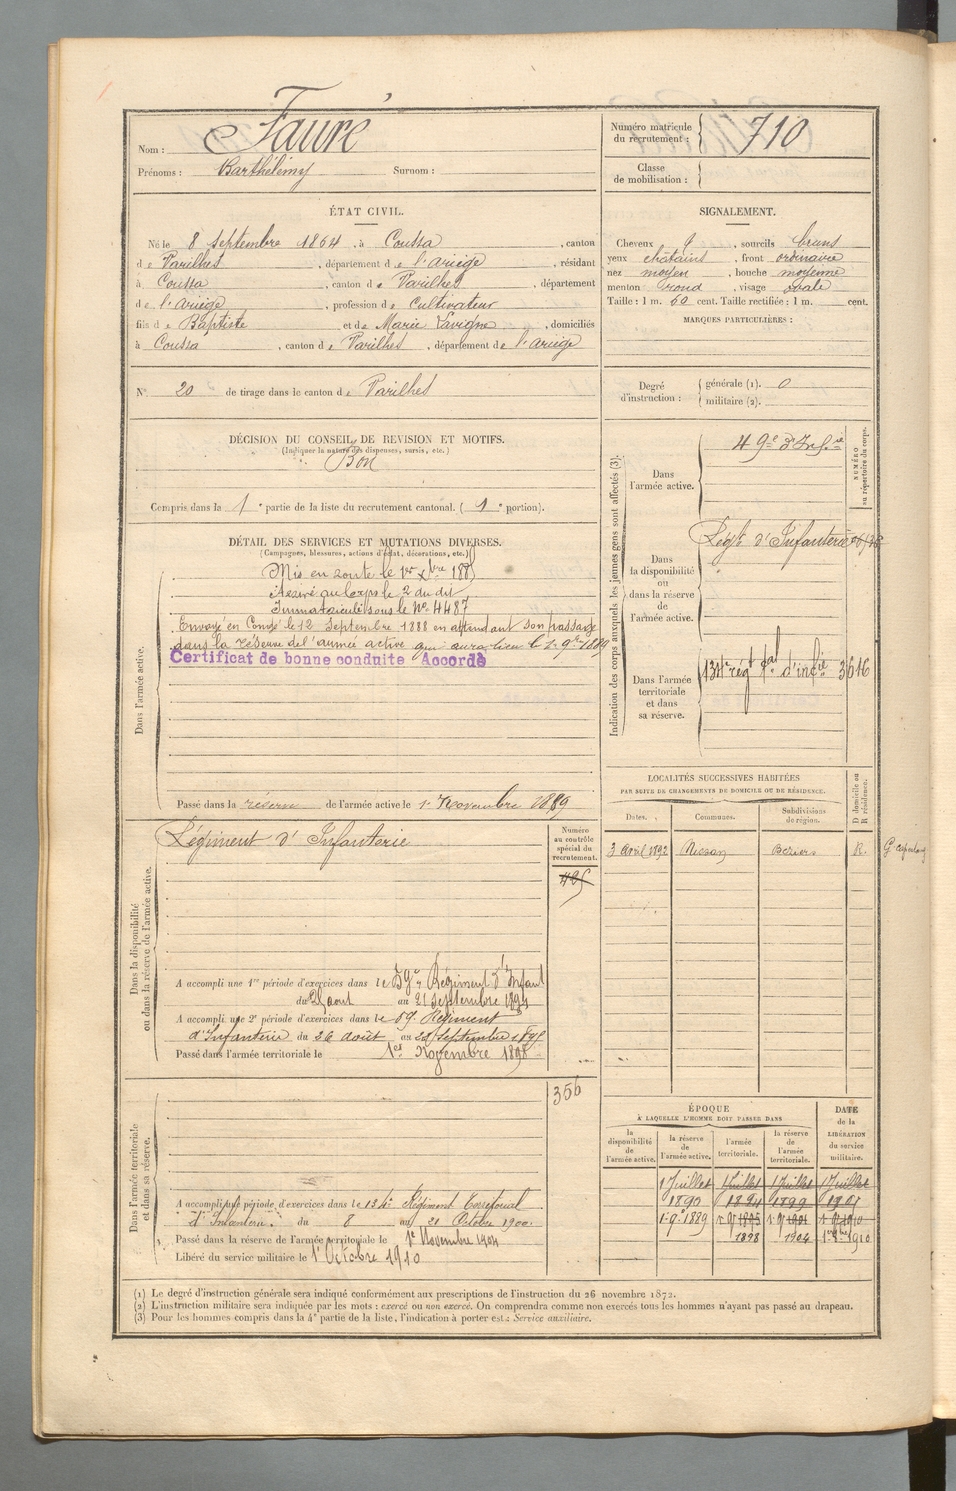 Nom : Faure
Prénoms : Barthélémy Surnom :
Numéro matricule du recrutement : 710
Classe de mobilisation :
ÉTAT CIVIL.
Né le 8 Septembre 1864, à Coussa, canton
de Varilhes, département de l'Ariège, résidant
à Coussa, canton de Varilhes, département
de l'Ariège, profession de Cultivateur
fils de Baptiste et de Marie Lavigne, domiciliés
à Coussa, canton de Varilhes, département de l'Ariège
N° 20 de tirage dans le canton de Varilhes
SIGNALEMENT.
Cheveux , sourcils bruns
yeux châtains, front ordinaire
nez moyen, bouche moyenne
menton rond, visage ovale
Taille : 1 m. 60 cent. Taille rectifiée : 1 m. cent.
MARQUES PARTICULIÈRES :
Degré d'instruction : générale (1). 0
militaire (2).
DÉCISION DU CONSEIL DE REVISION ET MOTIFS.
(Indiquer la nature des dispenses, sursis, etc.)
Bon
Compris dans la 1e partie de la liste du recrutement cantonal. (1e portion).
DÉTAIL DES SERVICES ET MUTATIONS DIVERSES.
(Campagnes, blessures, actions d'éclat, décorations, etc.)
Dans l'armée active.
Mis en route le 1er Xbre 1885
Arrivé au Corps le 2 du dit
Immatriculé sous le No 4487
Envoyé en Congé le 12 Septembre 1888 en attendant son passage
dans la réserve de l'armée active qui aura lieu le 1er 9bre 1889
Certificat de bonne conduite Accordé
Passé dans la réserve de l'armée active le 1er Novembre 1889
Indication des corps auxquels les jeunes gens sont affectés (3).
NUMÉRO au répertoire du corps.
Dans l'armée active. 49e d'Infie
Dans la disponibilité ou dans la réserve de l'armée active. Régt d'Infanterie
Dans l'armée territoriale et dans sa réserve. 134e régt tal d'infie 3616
LOCALITÉS SUCCESSIVES HABITÉES
PAR SUITE DE CHANGEMENTS DE DOMICILE OU DE RÉSIDENCE.
Dates. Communes. Subdivisions de région. D domicile ou R résidence.
3 Avril 1892 Béziers R.
Dans la disponibilité ou dans la réserve de l'armée active.
Numéro au contrôle spécial du recrutement.
Régiment d'Infanterie
A accompli une 1re période d'exercices dans le 59e Régiment d'Infant
du août au 21 Septembre 1894
A accompli une 2e période d'exercices dans le 59e Régiment
d'Infanterie du 26 août au Septembre
Passé dans l'armée territoriale le 1er Novembre 1898
Dans l'armée territoriale et dans sa réserve.
356
A accompli une période d'exercices dans le 134e Régiment Territorial
d'Infanterie du 8 au 21 Octobre 1900.
Passé dans la réserve de l'armée territoriale le 1er Novembre 1904
Libéré du service militaire le 1er Octobre 1910
ÉPOQUE
A LAQUELLE L'HOMME DOIT PASSER DANS
la disponibilité de l'armée active. la réserve de l'armée active. l'armée territoriale. la réserve de l'armée territoriale.
DATE de la LIBÉRATION du service militaire.
1 Juillet 1 Juillet 1 Juillet 1 Juillet
1890 1894 1899
1er 9e 1889 1er 9e 1895 1er 9e 1901 1er 9e 1910
1898 1904 1910
(1) Le degré d'instruction générale sera indiqué conformément aux prescriptions de l'instruction du 26 novembre 1872.
(2) L'instruction militaire sera indiquée par les mots : exercé ou non exercé. On comprendra comme non exercés tous les hommes n'ayant pas passé au drapeau.
(3) Pour les hommes compris dans la 4e partie de la liste, l'indication à porter est : Service auxiliaire.